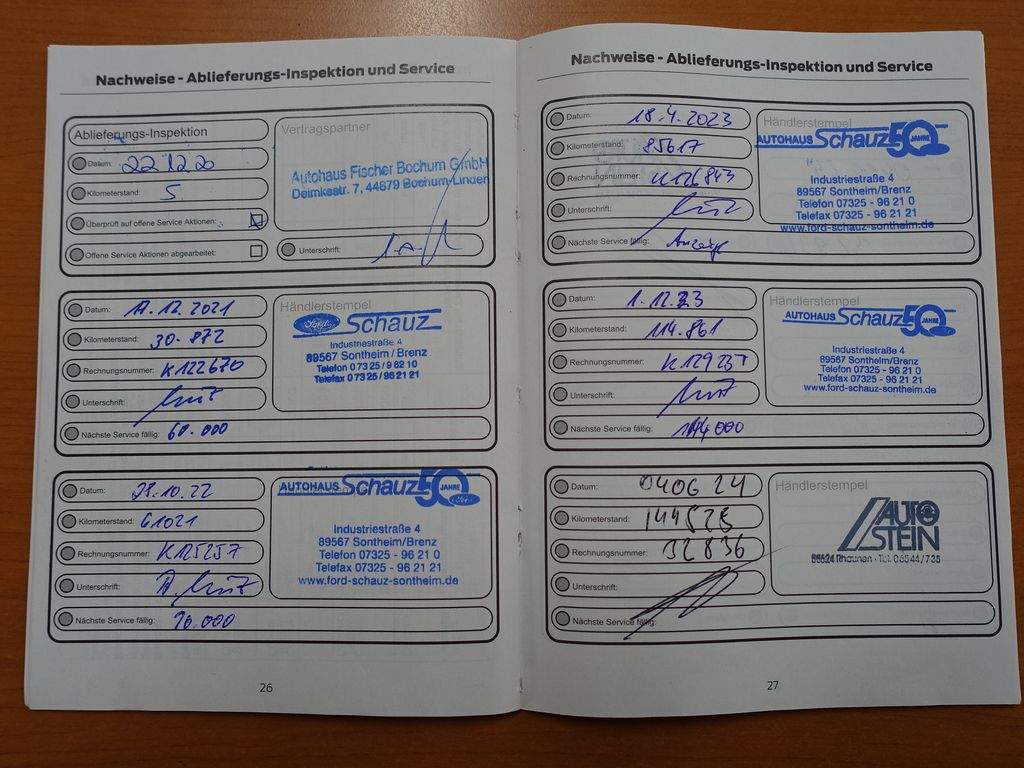 Nachweise - Ablieferungs-Inspektion und Service
Ablieferungs-Inspektion
Datum: 22.12.20
Kilometerstand: 5
Überprüft auf offene Service Aktionen:
Offene Service Aktionen abgearbeitet:
Vertragspartner
Autohaus Fischer Bochum GmbH
Deimkestr. 7, 44879 Bochum-Linden
Unterschrift:
Datum: 17.12.2021
Kilometerstand: 30.872
Rechnungsnummer: K122670
Unterschrift:
Nächste Service fällig: 60.000
Händlerstempel
Ford Schauz
Industriestraße 4
89567 Sontheim / Brenz
Telefon 07325/96210
Telefax 07325/962121
Datum: .10.22
Kilometerstand: 61021
Rechnungsnummer: K125257
Unterschrift:
Nächste Service fällig: 90.000
AUTOHAUS Schauz 50 JAHRE
Industriestraße 4
89567 Sontheim/Brenz
Telefon 07325 - 96 21 0
Telefax 07325 - 96 21 21
www.ford-schauz-sontheim.de
26
Nachweise - Ablieferungs-Inspektion und Service
Datum: 18.4.2023
Kilometerstand: 85617
Rechnungsnummer: K126843
Unterschrift:
Nächste Service fällig: Anzeige
Händlerstempel
AUTOHAUS Schauz 50 JAHRE
Industriestraße 4
89567 Sontheim/Brenz
Telefon 07325 - 96 21 0
Telefax 07325 - 96 21 21
www.ford-schauz-sontheim.de
Datum: 1.12.23
Kilometerstand: 114.861
Rechnungsnummer: K129237
Unterschrift:
Nächste Service fällig: 144.000
Händlerstempel
AUTOHAUS Schauz 50 JAHRE
Industriestraße 4
89567 Sontheim/Brenz
Telefon 07325 - 96 21 0
Telefax 07325 - 96 21 21
www.ford-schauz-sontheim.de
Datum: 040624
Kilometerstand: 144525
Rechnungsnummer: 32836
Unterschrift:
Nächste Service fällig:
Händlerstempel
AUTO
STEIN
55624 Rhaunen · Tel. 06544/735
27